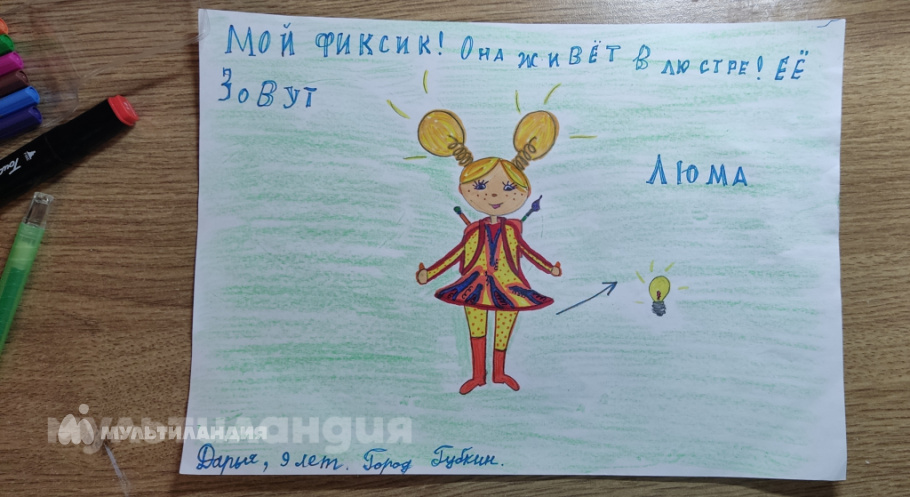 Мой фиксик! Она живёт в люстре! Её
Зовут
Люма
Touch
мультиландия
МУЛЬТИЛАНДИЯ
Дарья, 9 лет. Город Губкин.